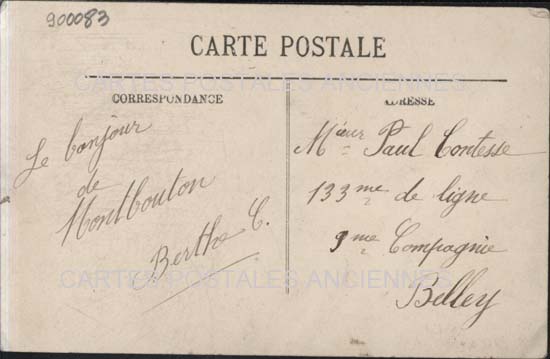 900083
CARTE POSTALE
CARTES POSTALES ANCIENNES
CORRESPONDANCE
Le bonjour
de
Montbouton
Berthe C.
ADRESSE
Mʳieur Paul Contesse
133me de ligne
9me Compagnie
Belley
CARTES POSTALES ANCIENNES